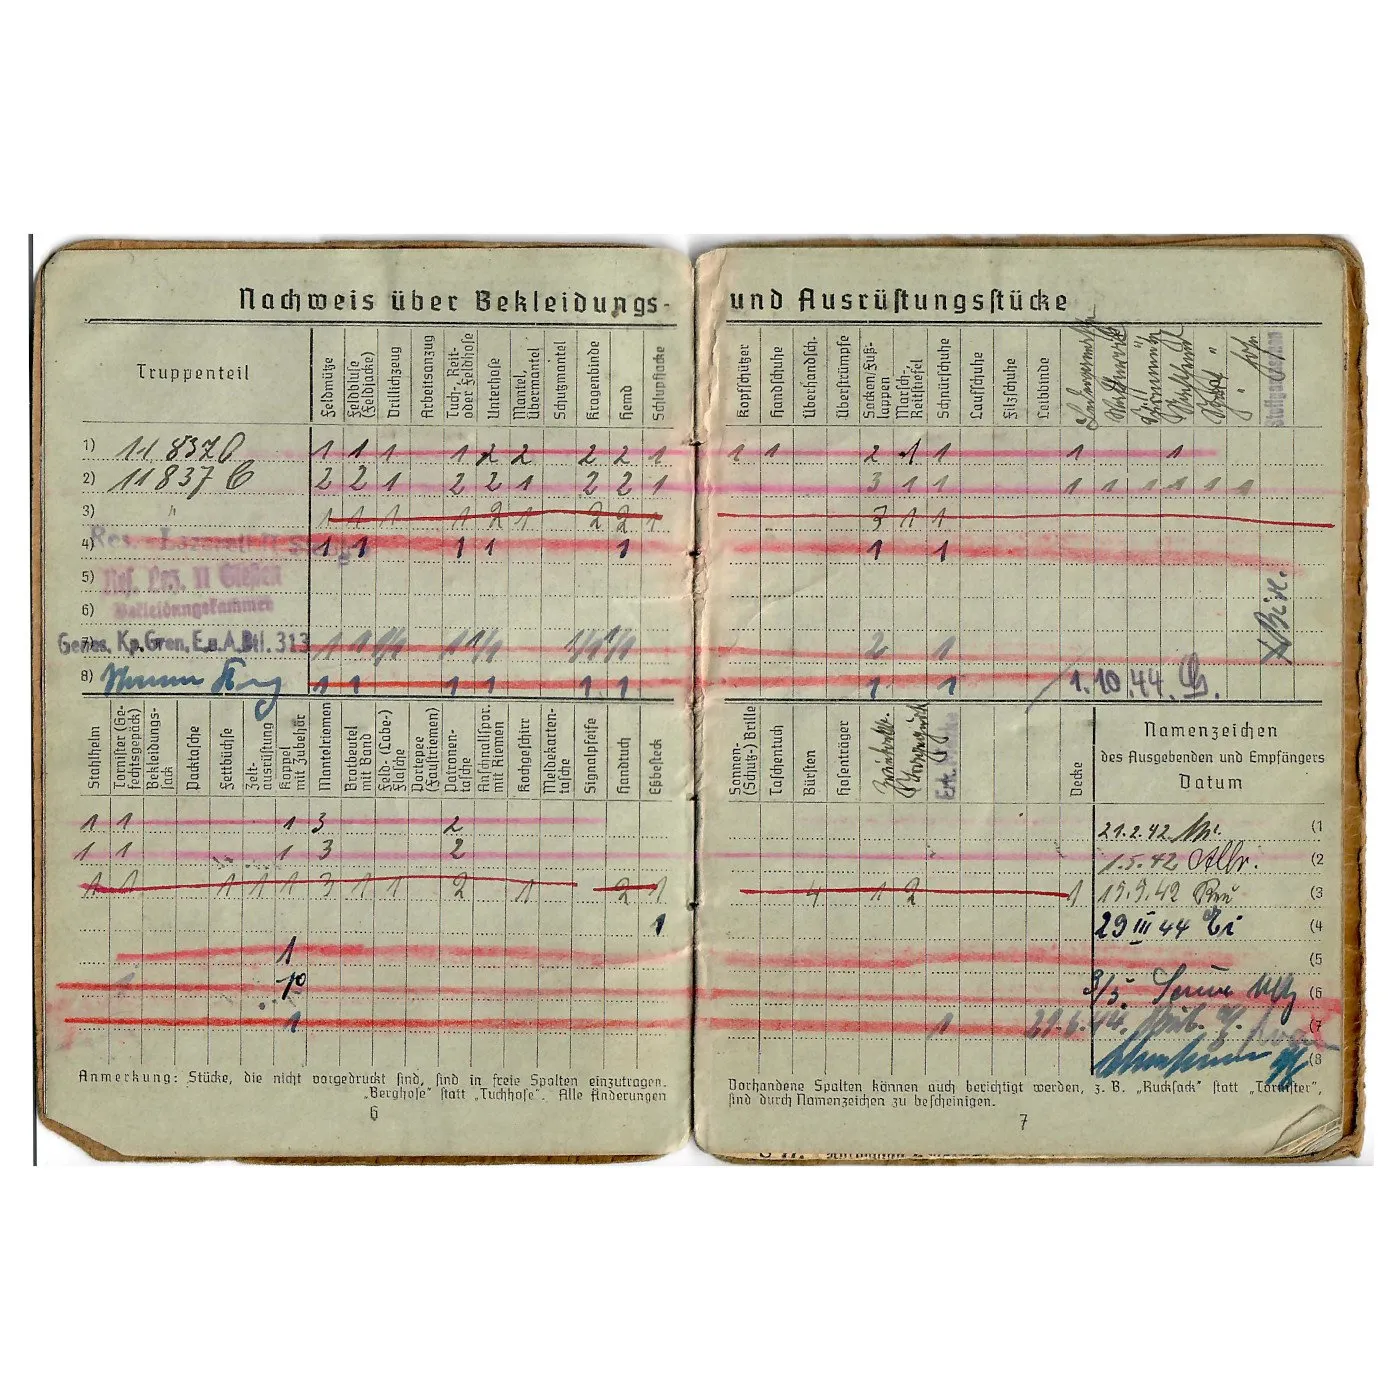 Nachweis über Bekleidungs- und Ausrüstungsstücke
Truppenteil
Feldmütze
Feldbluse (Feldjacke)
Drillichzeug
Arbeitsanzug
Tuch-, Reit- oder Feldhose
Unterhose
Mantel, Übermantel
Schutzmantel
Kragenbinde
Hemd
Schlupfjacke
Kopfschützer
Handschuhe
Überhandsch.
Überstrümpfe
Socken/Fuß-lappen
Marsch-, Reitstiefel
Schnürschuhe
Laufschuhe
Filzschuhe
Leibbinde
1) 11 837 C 1 1 1 1 2 2 2 2 1 1 1 2 1 1 1 1
2) 11 837 C 2 2 1 2 2 1 2 2 1 3 1 1 1 1 1 1 1 1
3) " 1 1 1 1 2 1 2 2 1 3 1 1
4) Res. 1 1 1 1 1 1 1
5) Res. Laz. II Gießen
6) Bekleidungskammer
7) Genes. Kp. Gren. E.u.A. Btl. 313 2 1
8) 1 1 1 1 1 1 1 1 1.10.44.
Stahlhelm
Tornister (Ge-fechtsgepäck)
Bekleidungs-sack
Packtasche
Fettbüchse
Zelt-ausrüstung
Koppel mit Zubehör
Mantelriemen
Brotbeutel mit Band
Feld- (Labe-) Flasche
Portepee (Faustriemen)
Patronen-tasche
Anschnallspor. mit Riemen
Kochgeschirr
Meldekarten-tasche
Signalpfeife
Handtuch
Eßbesteck
Sonnen- (Schutz-) Brille
Taschentuch
Bürsten
Hosenträger
Decke
Namenzeichen
des Ausgebenden und Empfängers
Datum
1 1 1 3 2 21.2.42 (1
1 1 1 3 2 1.5.42 Albr. (2
1 1 1 1 1 3 1 1 2 1 2 1 4 1 2 1 19.9.42 (3
1 29 III 44 (4
1 (5
1 3/5. (6
1 1 21.6.44. (7
(8
Anmerkung: Stücke, die nicht vorgedruckt sind, sind in freie Spalten einzutragen.
„Berghose“ statt „Tuchhose“. Alle Änderungen
6
Vorhandene Spalten können auch berichtigt werden, z. B. „Rucksack“ statt „Tornister“,
sind durch Namenzeichen zu bescheinigen.
7